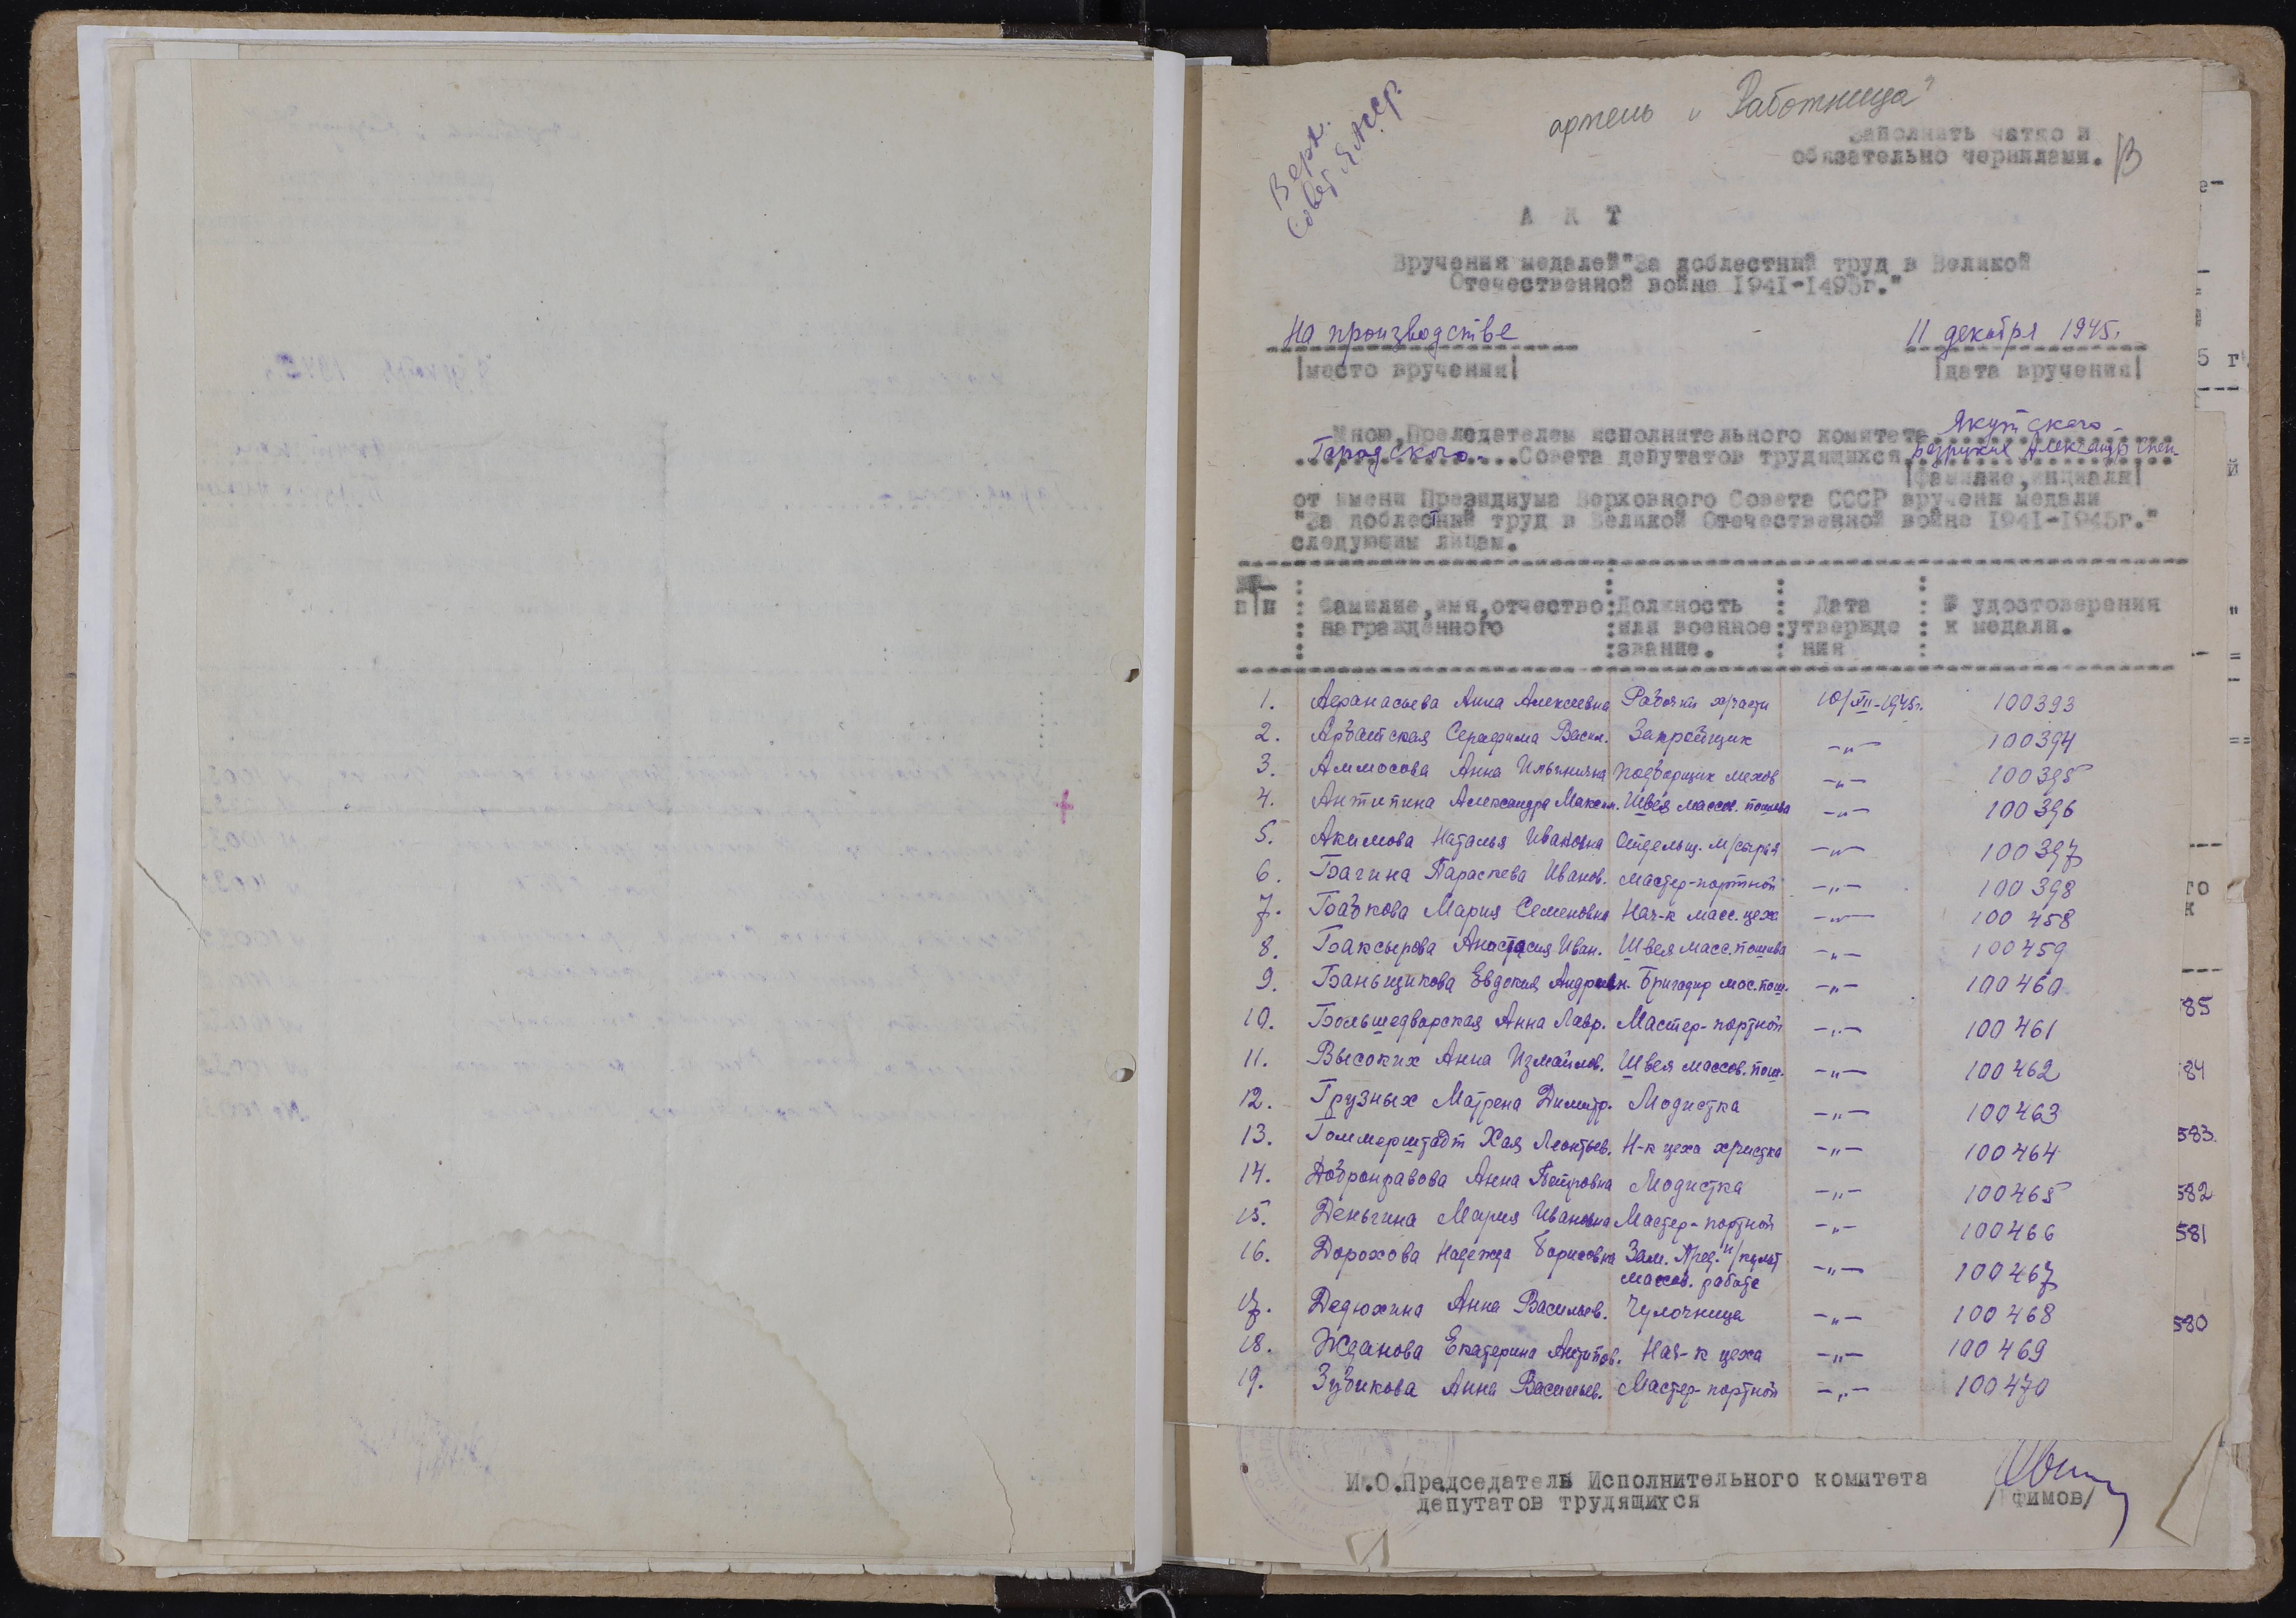 артель "Работница"
Верх.
Совет ЯАССР.
Заполнить четко и
обязательно чернилами.
В
А К Т
Вручения медалей "За доблестный труд в Великой
Отечественной войне 1941-1495г."
На производстве
11 декабря 1945.
|место вручения|
|дата вручения|
Якутского-
Мною, Председателем исполнительного комитета
Городского- Совета депутатов трудящихся Александр
|фамилие, инциалы|
от имени Президиума Верховного Совета СССР вручены медали
"За доблестный труд в Великой Отечественной войне 1941-1945г."
следующим лицам.
№№ п/п : Фамилие, имя, отчество награжденного : Должность или военное звание. : Дата утвержде ния : № удостоверения к медали.
1. Афанасьева Анна Алексеевна Рабочий х/части 10/XII-1945г. 100393
2. Арбатская Серафима Васил. Закройщик -"- 100394
3. Аммосова Анна Ильинична Подборщик мехов -"- 100395
4. Антипина Александра Максим. Швея массов. пошива -"- 100396
5. Акимова Наталья Ивановна Отдельщ. м/сырья -"- 100397
6. Багина Параскева Иванов. Мастер-портной -"- 100398
7. Бабкова Мария Семеновна Нач-к масс. цеха -"- 100458
8. Баксырова Анастасия Иван. Швея масс. пошива -"- 100459
9. Баньщикова Евдокия Андриян. Бригадир мас. пош. -"- 100460
10. Большедворская Анна Лавр. Мастер-портной -"- 100461
11. Высоких Анна Измайлов. Швея массов. пош. -"- 100462
12. Грузных Матрена Димитр. Модистка -"- 100463
13. Гоммерштадт Хая Леонтьев. Н-к цеха -"- 100464
14. Добронравова Анна Петровна Модистка -"- 100465
15. Деньгина Мария Ивановна Мастер-портной -"- 100466
16. Дорохова Надежда Борисовна Зам. Пред. п/культ
массов. работе -"- 100467
17. Дедюхина Анна Васильев. Чулочница -"- 100468
18. Жданова Екатерина Антипов. Нач-к цеха -"- 100469
19. Зубикова Анна Васильев. Мастер-портной -"- 100470
И.О.Председатель Исполнительного комитета
депутатов трудящихся
/Ефимов/
5 г
85
84
583.
582
581
580